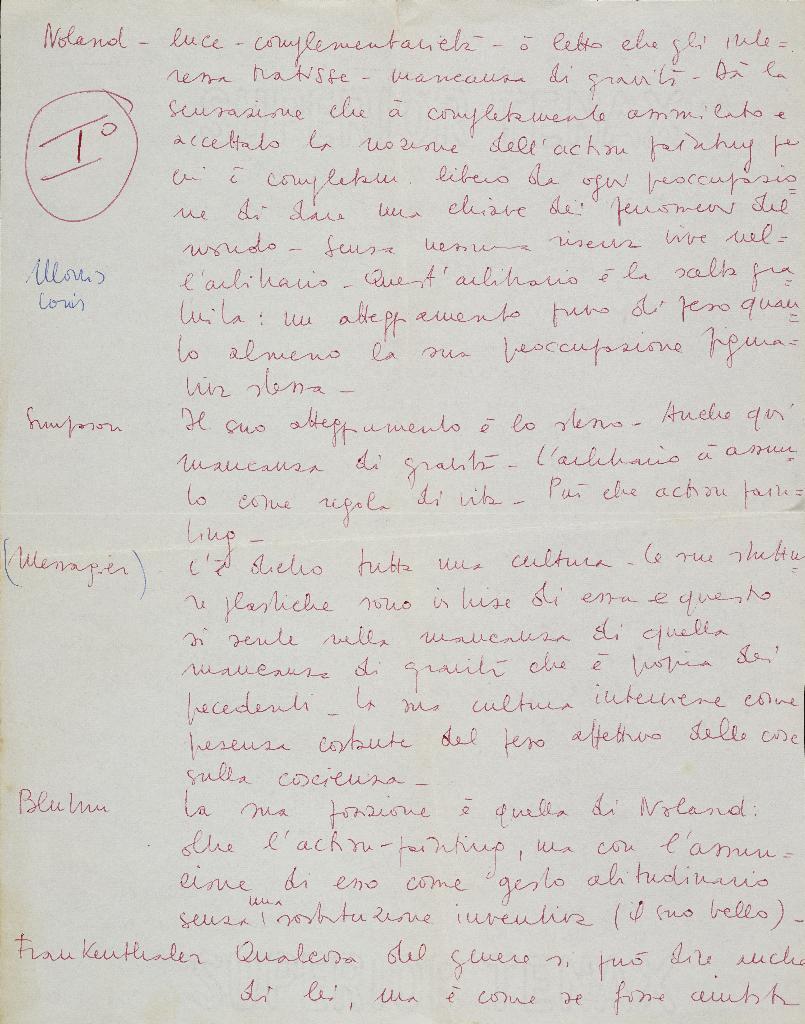 Noland - luce - complementarietà - ò letto che gli inte=
ressa Matisse - mancanza di gravità - Dà la
sensazione che à completamente assimilato e
accettato la nozione dell'action painting pe
cui è completam. libero da ogni preoccupazio=
ne di dare una chiave dei fenomeni del
mondo - Senza nessuna riserva vive nel=
l'arbitrario - Quest'arbitrario è la scelta gra=
tuita: un atteggiamento puro di peso quan=
to almeno la sua preoccupazione figura=
tiva stessa -
I°
Morris
Louis
Simpson Il suo atteggiamento è lo stesso - Anche qui
mancanza di gravità - L'arbitrario à assun=
to come regola di vita - Più che action pain=
ting -
(Messagier) C'è dietro tutta una cultura - Le sue struttu
re plastiche sono intrise di essa e questo
si sente nella mancanza di quella
mancanza di gravità che è propria dei
precedenti - La sua cultura interviene come
presenza costante del peso affettivo delle cose
sulla coscienza -
Bluhm La sua posizione è quella di Noland:
oltre l'action-painting, ma con l'assun=
zione di esso come gesto abitudinario
senza una sostituzione inventiva (il suo bello) -
Frankenthaler Qualcosa del genere si può dire anche
di lei, ma è come se fosse